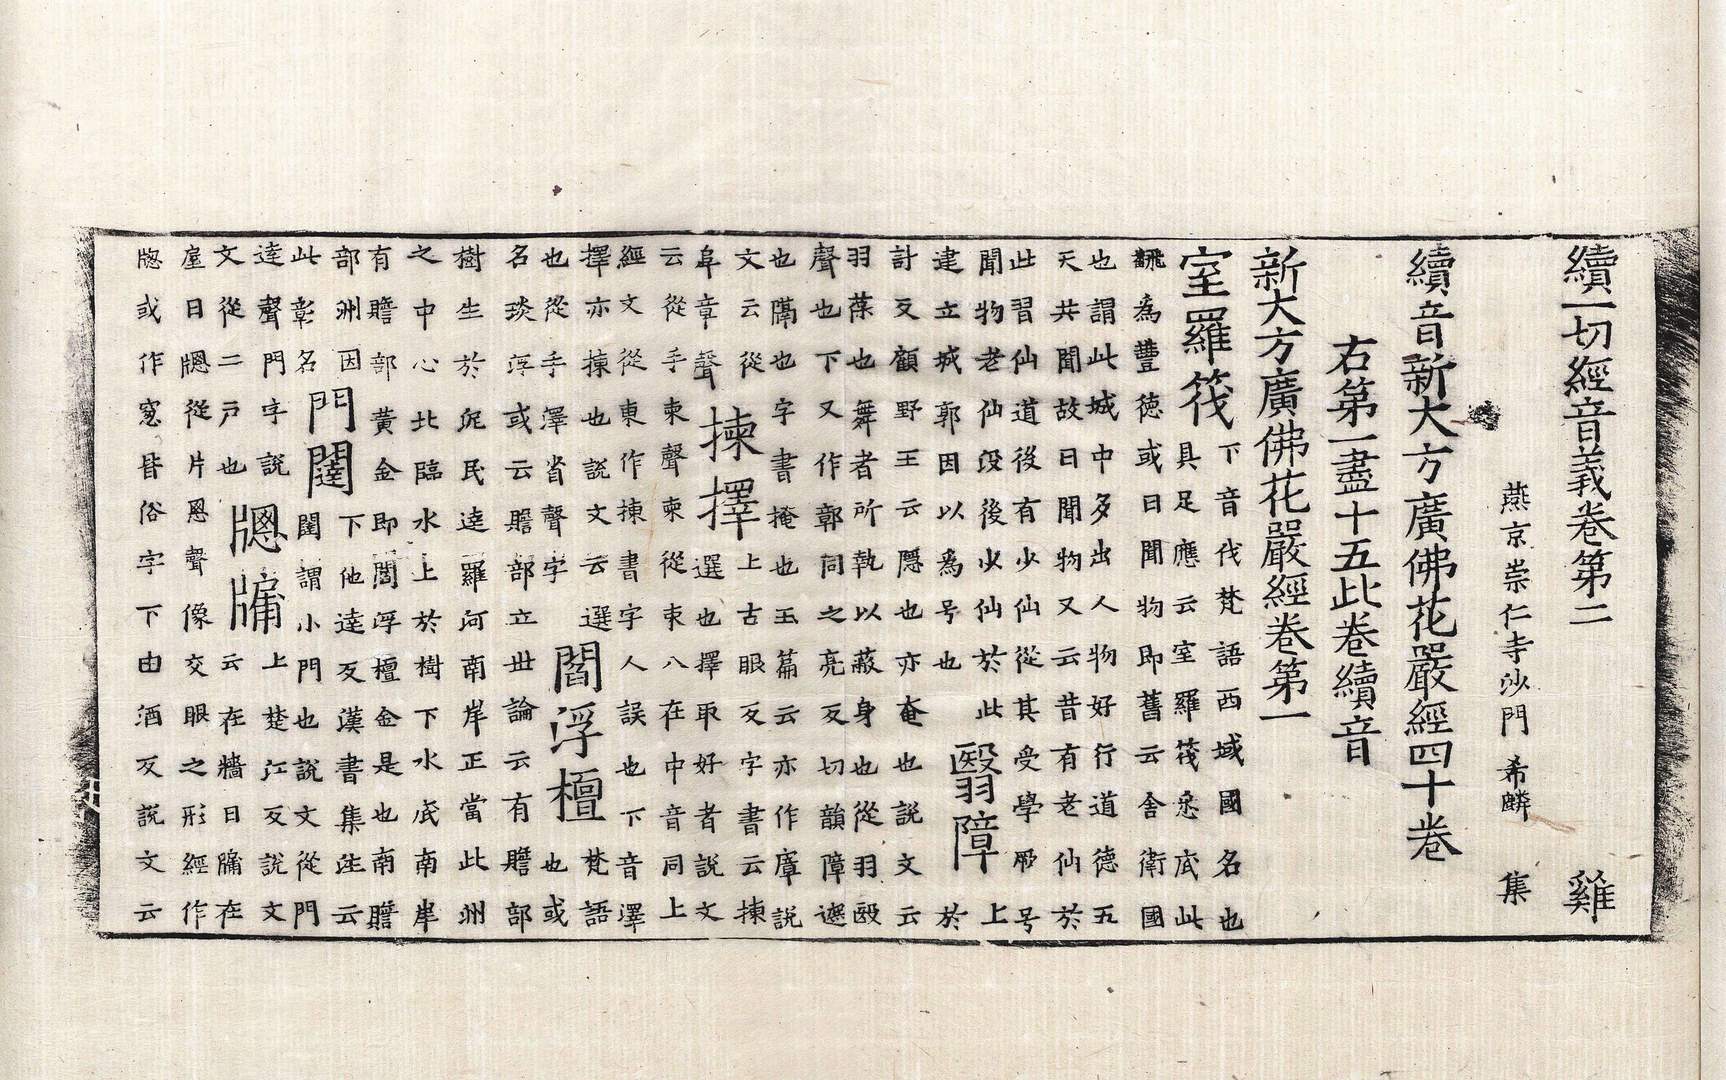 續一切經音義卷第二 雞
燕京崇仁寺沙門 希麟 集
續音新大方廣佛花嚴經四十卷
右第一盡十五此卷續音
新大方廣佛花嚴經卷第一
室羅筏
下音伐梵語西域國名也
具足應云室羅筏悉底此
飜為豐德或曰聞物即舊云舍衛國
也謂此城中多出人物好行道德五
天共聞故曰聞物又云昔有老仙於
此習仙道後有少仙從其受學厥号
聞物老仙歿後少仙於此
建立城郭因以為号也
翳障
上
於
計反顧野王云隱也亦奄也說文云
羽葆也舞者所執以蔽身也從羽殹
聲也下又作鄣同之亮反切韻障遮
也隔也字書掩也玉篇云亦作㢓說
文云從
阜章聲
揀擇
上古眼反字書云揀
選也擇取好者說文
云從手柬聲柬從束八在中音同上
經文從東作揀書字人誤也下音澤
擇亦揀也說文云選
也從手澤省聲字
閻浮檀
梵語
也或
名琰浮或云贍部立丗論云有贍部
樹生於泥民達羅河南岸正當此洲
之中心北臨水上於樹下水底南岸
有贍部黃金即閻浮檀金是也南贍
部洲因
此彰名
門闥
下他達反漢書集注云
闥謂小門也說文從門
達聲門字說
文從二戶也
牕牖
上楚江反說文
云在牆曰牖在
屋曰牕從片悤聲像交眼之形經作
牎或作窓皆俗字下由酒反說文云